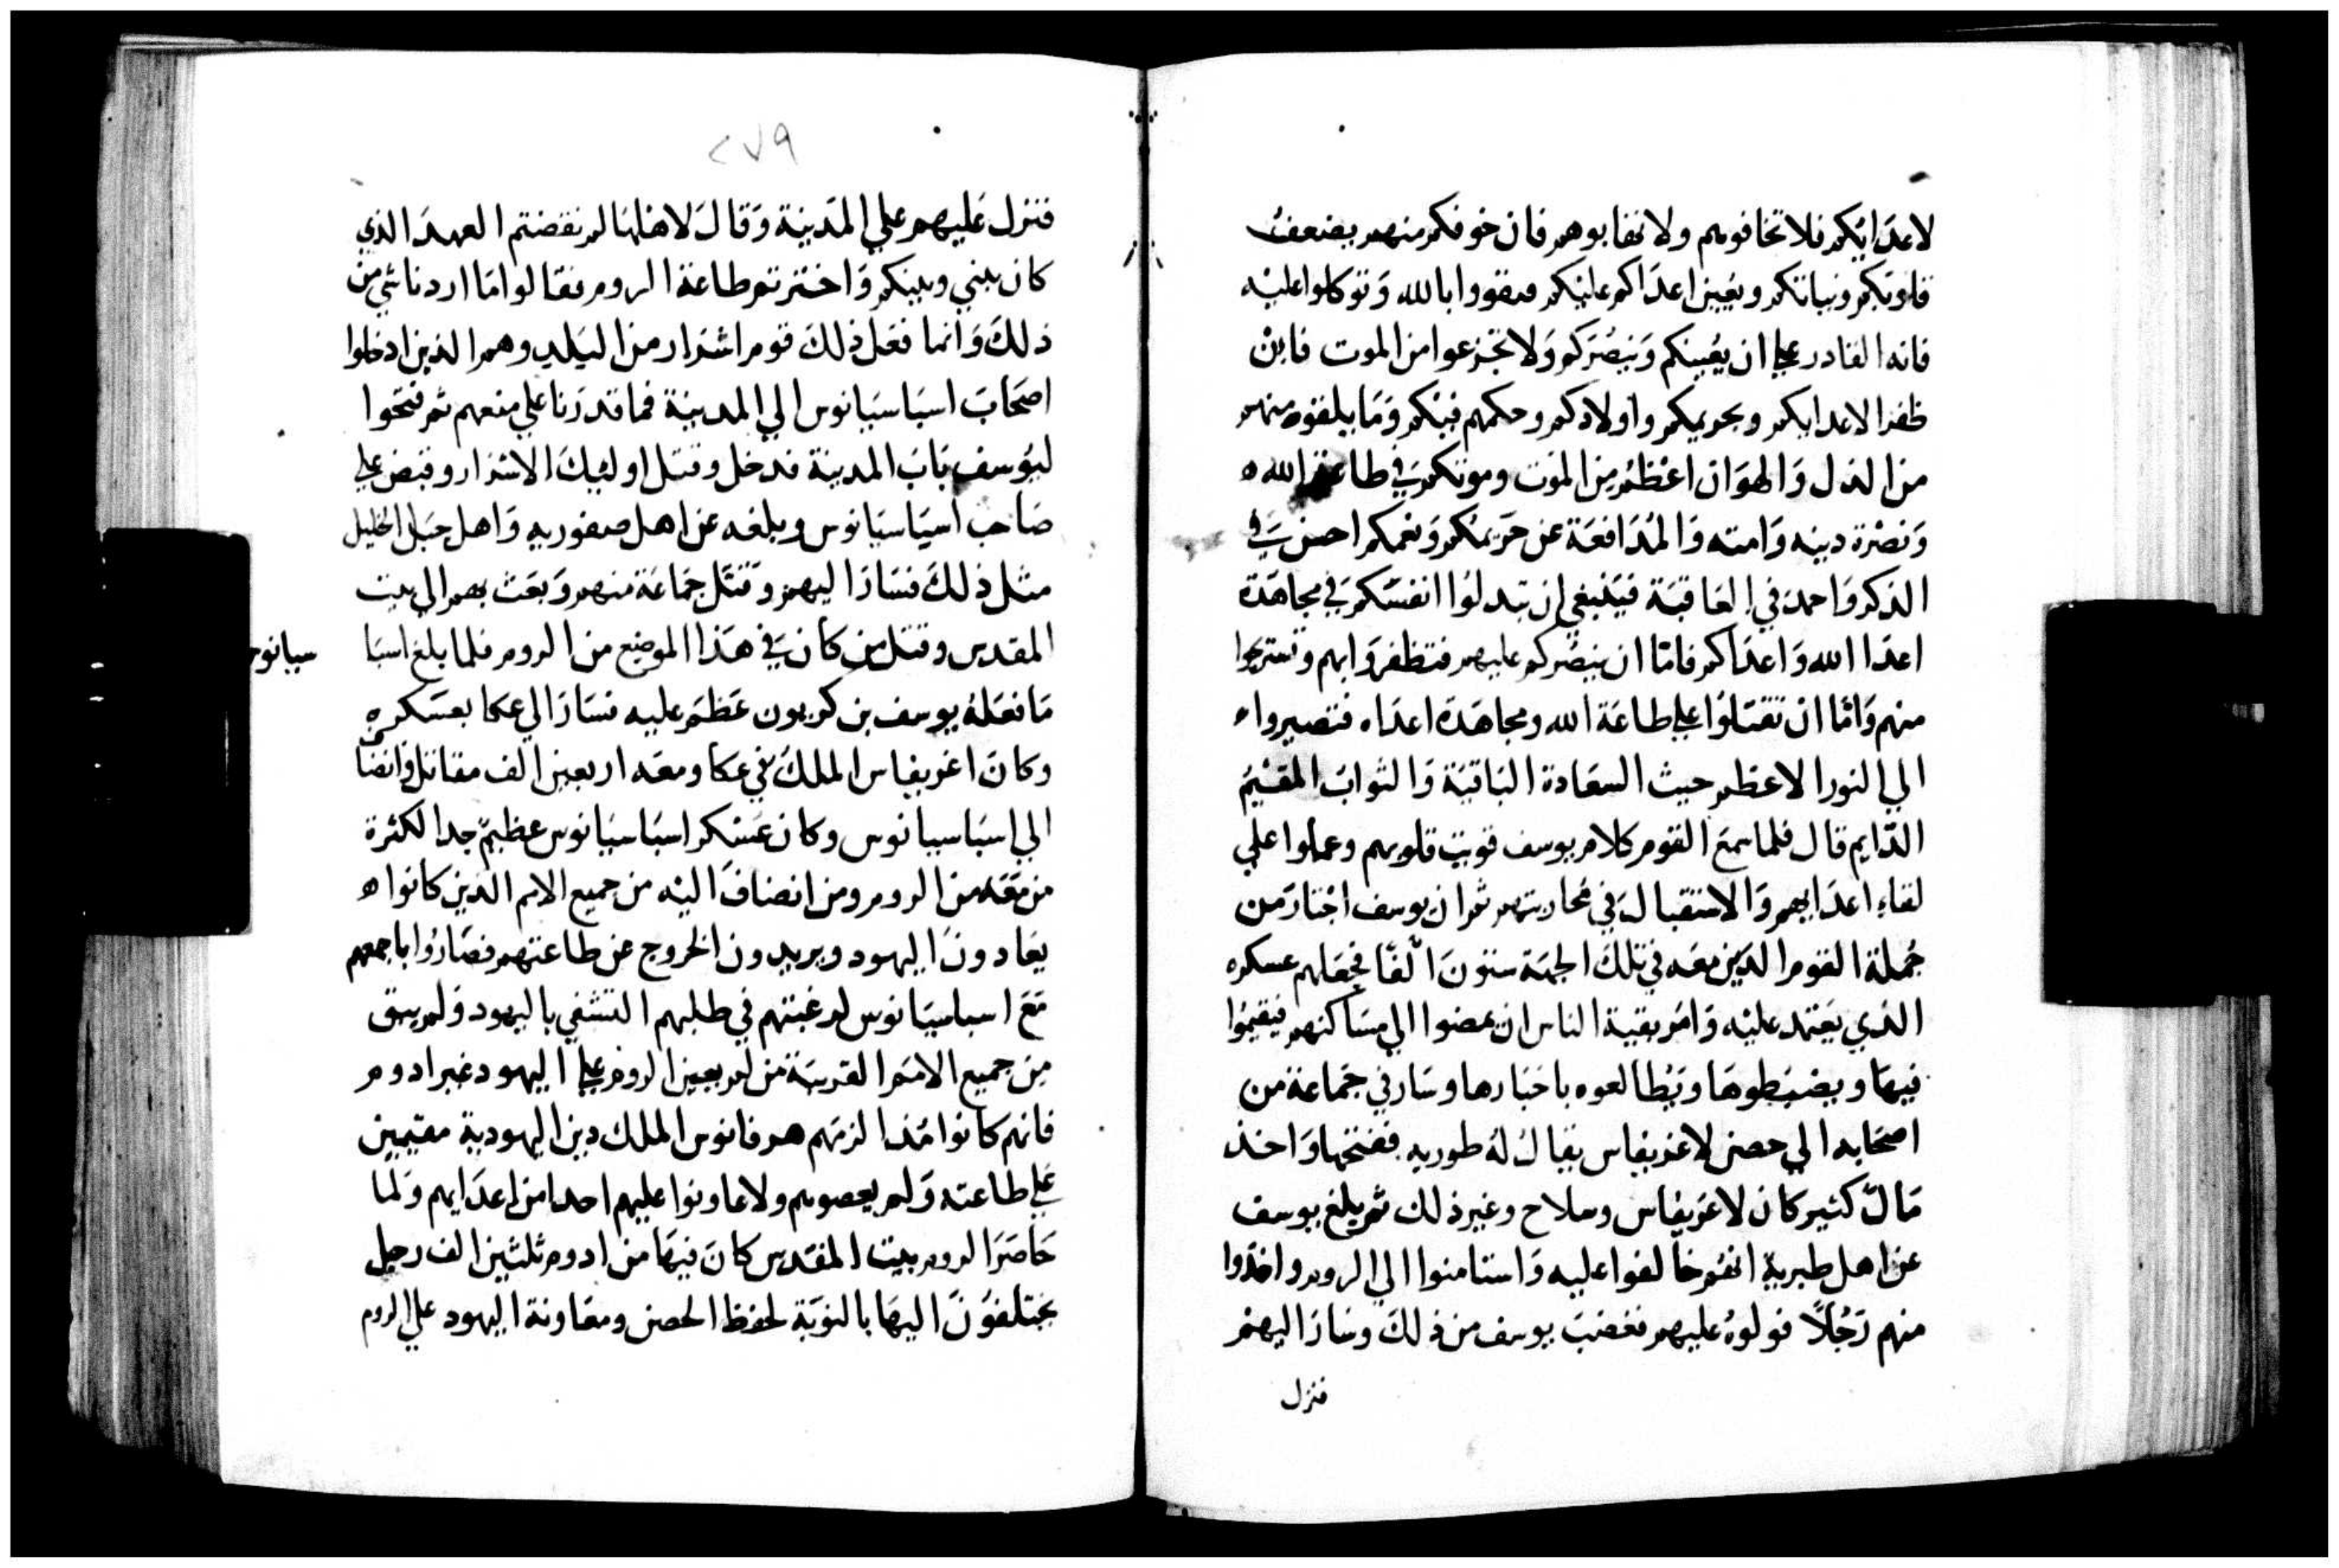 لاعدَايكم فلا تخافوهم ولا تهابوهم فان خوفكم منهم يضعف
قلوبكم ونياتكم ويعين اعدَاكم عليكم فتقووا بالله وَتوكلوا عليْه
فانه القادر علي ان يعُينكم وَينصُركم وَلا تجزعوا من الموت فاِنْ
ظفر الاعدا بكم وبحريمكم واولادكم وحكمهم فيْكم وَمَا يلقوه منهم
من الذل وَالهوَان اعْظمُ مِن الموَت وموتكم في طاعة الله
وَنصْرة دينه وَامته وَالمُدَافعَة عن حَريمُكم وَنعمكم احسن في
الذكر وَاحمد في العَاقبَة فيَنبغي ان تبدلوُا انفسَكم في مجاهَدة
اعدَا الله وَاعدَاكم فامّا ان ينصُركم عليهم فتظفروَا بهم وتستريحوا
منهم وَامّا ان تقتلوُا علي طاعَة الله ومجاهَدة اعدَاه فتصيروا
الي النور الاعظم حيث السعَادة البَاقيَة وَالثوابَ المقيْمُ
الدّايم قال فلما سمعَ القوم كلام يوسف قويت قلوبهم وعملوا علي
لقاءِ اعدَايهم وَالاستقبال في محُاربتهم ثم ان يوسف اخْتارَ من
جُملة القوم الذين معَه في تلكَ الجهَة ستونَ الْفًا فجعَلهم عسكره
الذي يَعتمد عليْه وَامَر بقية الناس ان يمضوا الي مسَاكنهم فيقيموُا
فيهَا ويضبطوهَا ويُطالعوه باخبَارها وسَار في جمَاعة من
اصحَابه الي حصن لاغريفاس يقال لهُ طوريه ففتحهَا وَاخذ
مَالٌ كثير كان لاغريفاس وسلاح وغير ذلك ثم بلغ يوسف
عن اهل طبرية انهُم خالفوا عليه وَاستامنوا الي الروم واخذوا
منهم رَجُلاً فولوهُ عليهم فغضبَ يوسف من ذلكَ وسَارَ اليهمْ
فنزل
٢٧٩
فنزل عَليهم علي المدَينة وَقالَ لاهلهَا لم نقضتم العهدَ الذي
كان بيني وبينكم وَاخترتم طاعة الروم فقالوا مَا اردنا شي من
ذلكَ وَانما فعَل ذلكَ قوم اشرَار من البَلد وهم الذين ادخلوا
اصحَابَ اسبَاسيَانوس الي المدينة فما قدرَنا علي منعهم ثم فتحَوا
ليوُسف بَابَ المدينة فدخل وقتل اوليكَ الاشرار وقبض علي
صَاحب اسيَاسيَانوس وبلغه عن اهل صفوريه وَاهل جبَل الخليل
مثل ذلكَ فسَارَ اليهم وَقتل جمَاعَة منهم وَبعَث بهم الي بيت
المقدس وقتل من كان في هَذا الموضع من الروم فلما بلغ اسبَا
سيانوس
مَا فعَلهُ يوسف بن كريون عَظم عليه فسَارَ الي عكا بعسَكره
وكانَ اغريفاس الملكُ في عكا ومعَه اربعين الف مقاتل وَانضَاف
الي اسبَاسيانوس وكان عَسْكر اسبَاسيَانوس عظيمٌ جدا لكثرة
من مَعَه من الروم ومن انضافَ اليْه من جميع الامم الذين كانوا
يعَادونَ اليهود ويريدون الخروج عن طاعتهم فصَارُوا باجمعهم
مَعَ اسباسيَانوس لرغبتهم في طلبهم التشفي باليهود وَلم يبق
مِن جميع الامَم القريبَة من لم يعين الروم علي اليهود غير ادوم
فانهم كانوا مُنذ الزمَهم هرقانوس الملك دين اليهودية مقيمين
عَلي طاعته وَلم يعصوهم ولا عاونوا عليهم احدا من اعدَايهم وَلما
حَاصَرَ الروم بيت المقدس كانَ فيهَا من ادوم ثلثين الف رجل
يختلفوُنَ اليهَا بالنوَبَة لحفظ الحصن ومعَاونة اليهود علي الروم